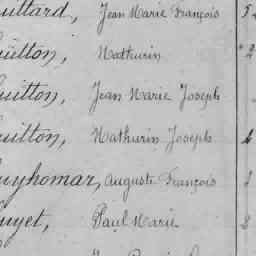 uillard, Jean Marie François 5
uitton, Mathurin 2
uitton, Jean Marie Joseph
uitton, Mathurin Joseph 4
uyhomar, Auguste François 1
uyet, Paul Marie 2